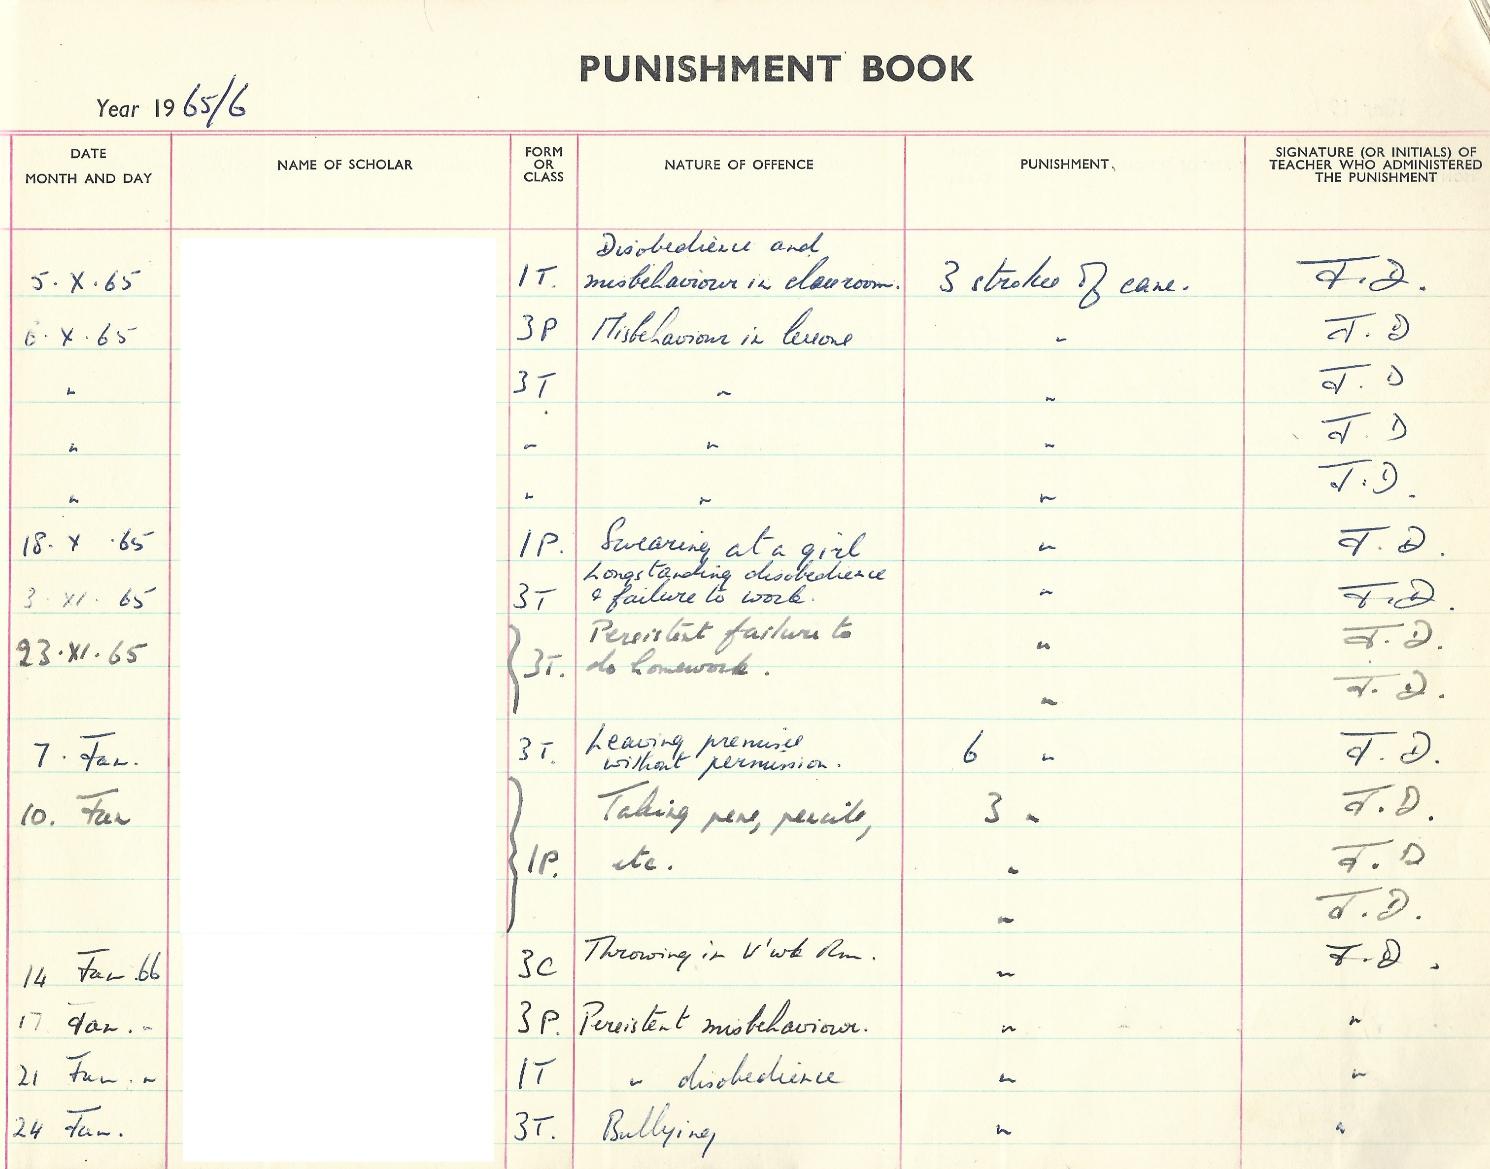 PUNISHMENT BOOK
Year 1965/6
DATE MONTH AND DAY NAME OF SCHOLAR FORM OR CLASS NATURE OF OFFENCE PUNISHMENT SIGNATURE (OR INITIALS) OF TEACHER WHO ADMINISTERED THE PUNISHMENT
Disobedience and
5.X.65 1T. misbehaviour in classroom. 3 strokes of cane. J.D.
6.X.65 3P Misbehaviour in lessons " J.D
" 3T " " J.D
" " " " J.D
" " " " J.D.
18.X.65 1P. Swearing at a girl " J.D.
Longstanding disobedience
3.XI.65 3T & failure to work. " J.D.
Persistent failure to " J.D.
23.XI.65 3T. do homework.
" J.D.
Leaving premises
7. Jan. 3T. without permission. 6 " J.D.
10. Jan Taking pens, pencils, 3 " J.D.
1P. etc. " J.D
" J.D.
14 Jan 66 3C Throwing in W'wk Rm. " J.D.
17 Jan. " 3P. Persistent misbehaviour. " "
21 Jan. " 1T " disobedience " "
24 Jan. 3T. Bullying " "